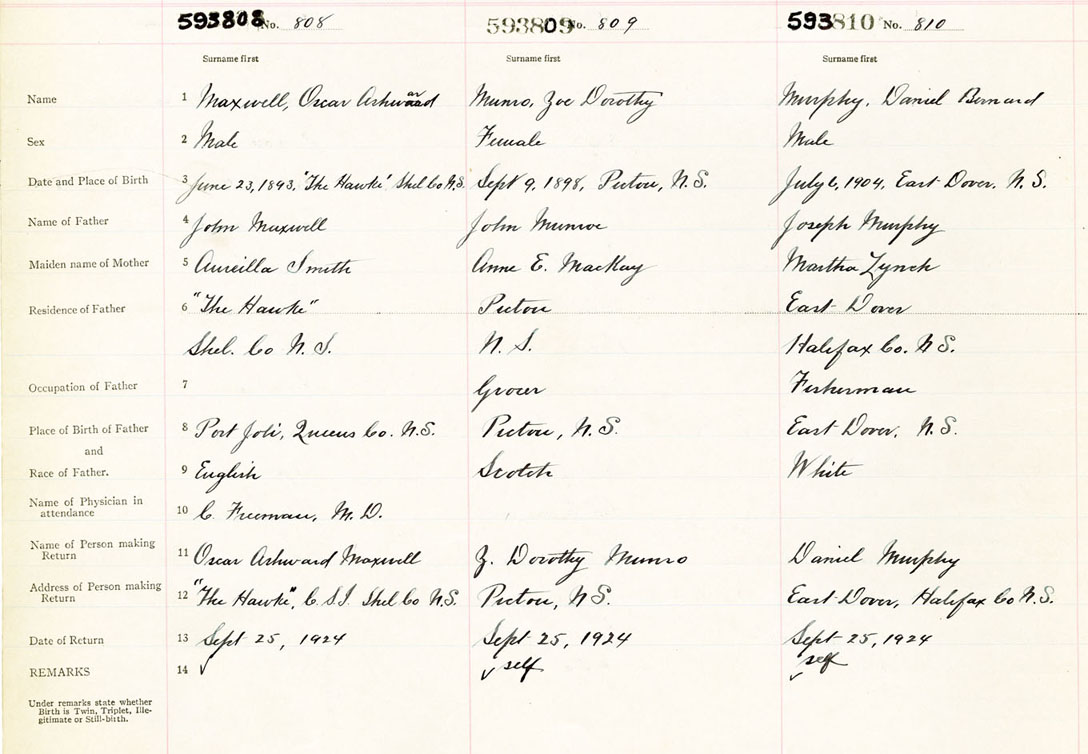 593808 No. 808 593809 No. 809 593810 No. 810
Surname first Surname first Surname first
Name 1 Maxwell, Oscar Ashward Munro, Zoe Dorothy Murphy, Daniel Bernard
Sex 2 Male Female Male
Date and Place of Birth 3 June 23, 1893, "The Hawke" Shel Co N.S. Sept 9, 1898, Pictou, N.S. July 6, 1904, East Dover, N.S.
Name of Father 4 John Maxwell John Munroe Joseph Murphy
Maiden name of Mother 5 Smith Anne E. MacKay Martha Lynch
Residence of Father 6 "The Hawke" Pictou East Dover
Shel. Co N.S. N.S. Halifax Co. N.S.
Occupation of Father 7 Grocer Fisherman
Place of Birth of Father 8 Port Joli, Queens Co. N.S. Pictou, N.S. East Dover, N.S.
and
Race of Father. 9 English Scotch White
Name of Physician in
attendance 10 C. Freeman, M.D.
Name of Person making
Return 11 Oscar Ashward Maxwell Z. Dorothy Munro Daniel Murphy
Address of Person making
Return 12 "The Hawke", C.S.I. Shel Co N.S. Pictou, N.S. East Dover, Halifax Co N.S.
Date of Return 13 Sept 25, 1924 Sept 25, 1924 Sept 25, 1924
REMARKS 14 ✓ ✓ self ✓ self
Under remarks state whether
Birth is Twin, Triplet, Ille-
gitimate or Still-birth.